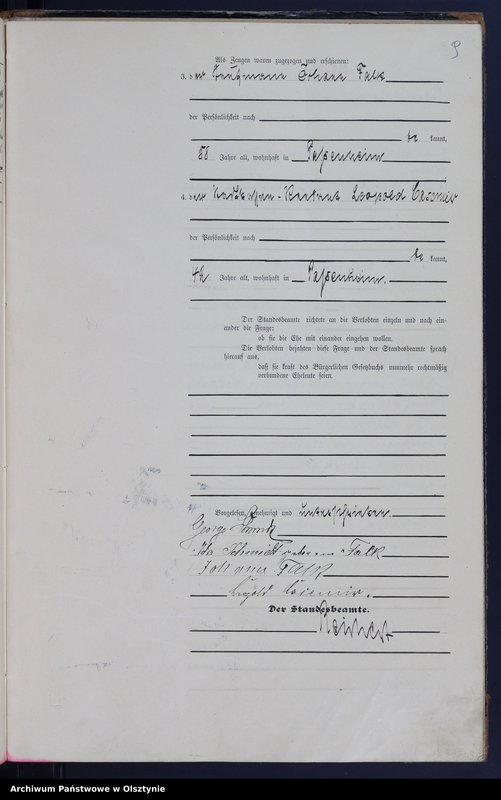 9
Als Zeugen waren zugezogen und erschienen:
3. der Kaufmann Johann Falk
der Persönlichkeit nach
kannt,
58 Jahre alt, wohnhaft in Passenheim
4. der Leopold Casimir
der Persönlichkeit nach
kannt,
42 Jahre alt, wohnhaft in Passenheim.
Der Standesbeamte richtete an die Verlobten einzeln und nach ein-
ander die Frage:
ob sie die Ehe mit einander eingehen wollen.
Die Verlobten bejahten diese Frage und der Standesbeamte sprach
hierauf aus,
daß sie kraft des Bürgerlichen Gesetzbuchs nunmehr rechtmäßig
verbundene Eheleute seien.
Vorgelesen, genehmigt und unterschrieben.
George
Ida Schmidt geborene Falk
Johann Falk
Leopold Casimir.
Der Standesbeamte.
Archiwum Państwowe w Olsztynie